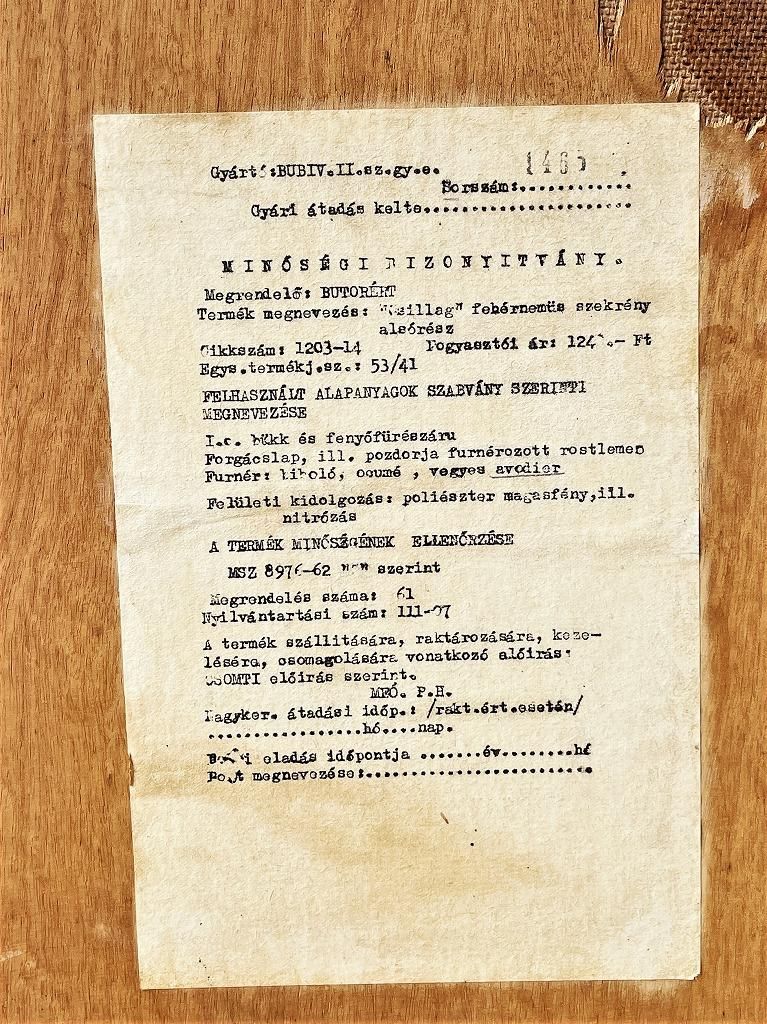 Gyártó:BUBIV.II.sz.gy.e.
Sorszám:............
Gyári átadás kelte....................
MINŐSÉGI BIZONYITVÁNY.
Megrendelő: BUTORÉRT
Termék megnevezés: "Csillag" fehérneműs szekrény
alsórész
Cikkszám: 1203-14 Fogyasztói ár: Ft
Egys.termékj.sz.: 53/41
FELHASZNÁLT ALAPANYAGOK SZABVÁNY SZERINTI
MEGNEVEZÉSE
I.o. bükk és fenyőfürészáru
Forgácslap, ill. pozdorja furnérozott rostlemez
Furnér: ocumé , vegyes avodier
Felületi kidolgozás: poliészter magasfény,ill.
nitrózás
A TERMÉK MINŐSÉGÉNEK ELLENŐRZÉSE
MSZ 8976-62 szerint
Megrendelés száma: 61
Nyilvántartási szám:
A termék szállitására, raktározására, keze-
lésére, csomagolására vonatkozó előirás:
előirás szerint.
MEÓ. P.H.
Nagyker. átadási időp.: /rakt.ért.esetén/
................hó.....nap.
Bolti eladás időpontja .......év........hó
Bolt megnevezése:.......................